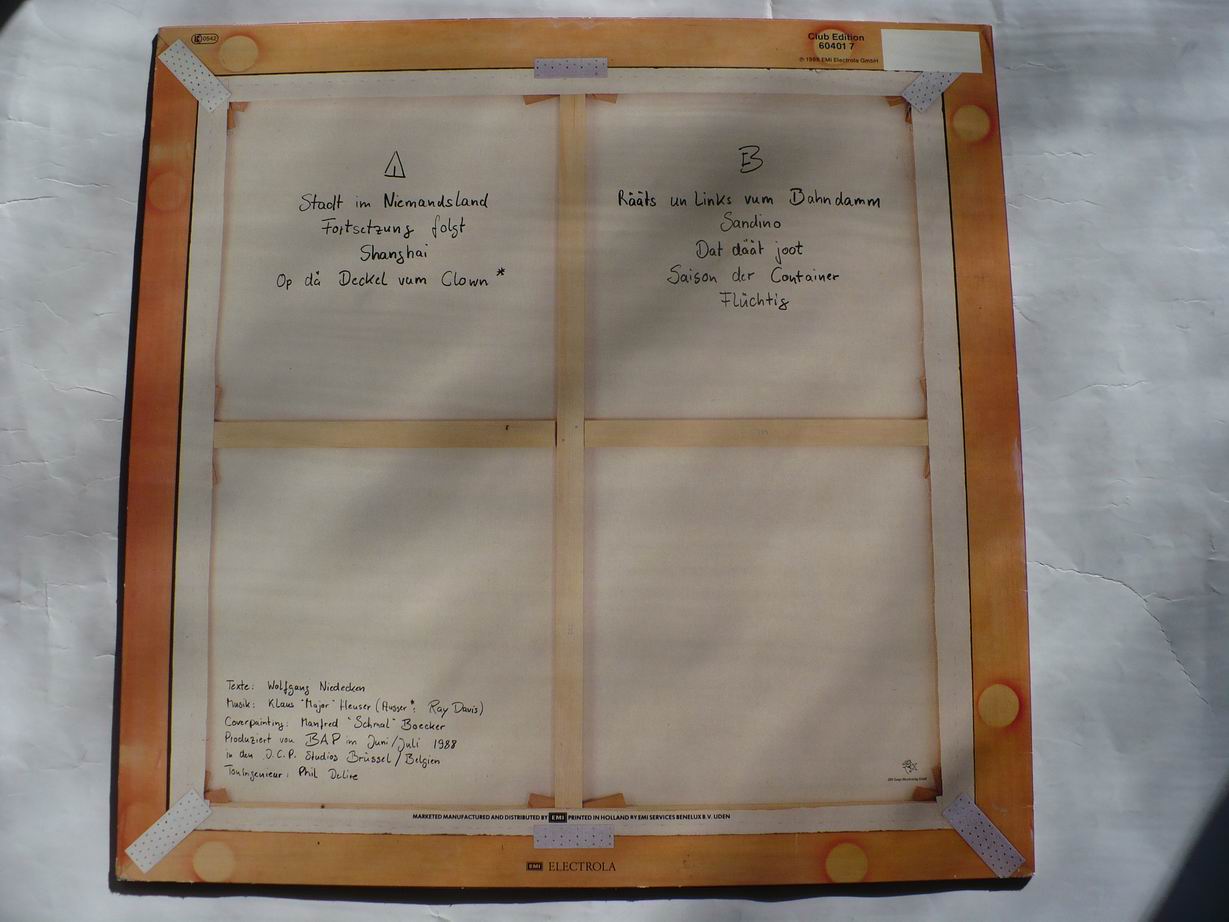 0542
Club Edition
60401 7
℗ 1988 EMI Electrola GmbH
A
Stadt im Niemandsland
Fortsetzung folgt
Shanghai
Op dä Deckel vum Clown*
B
Rääts un Links vum Bahndamm
Sandino
Dat däät joot
Saison der Container
Flüchtig
Texte: Wolfgang Niedecken
Musik: Klaus "Major" Heuser (Ausser*: Ray Davis)
Coverpainting: Manfred "Schmal" Boecker
Produziert von BAP im Juni/Juli 1988
in den I.C.P. Studios Brüssel/Belgien
Toningenieur: Phil Delire
MARKETED MANUFACTURED AND DISTRIBUTED BY EMI PRINTED IN HOLLAND BY EMI SERVICES BENELUX B.V. UDEN
EMI ELECTROLA